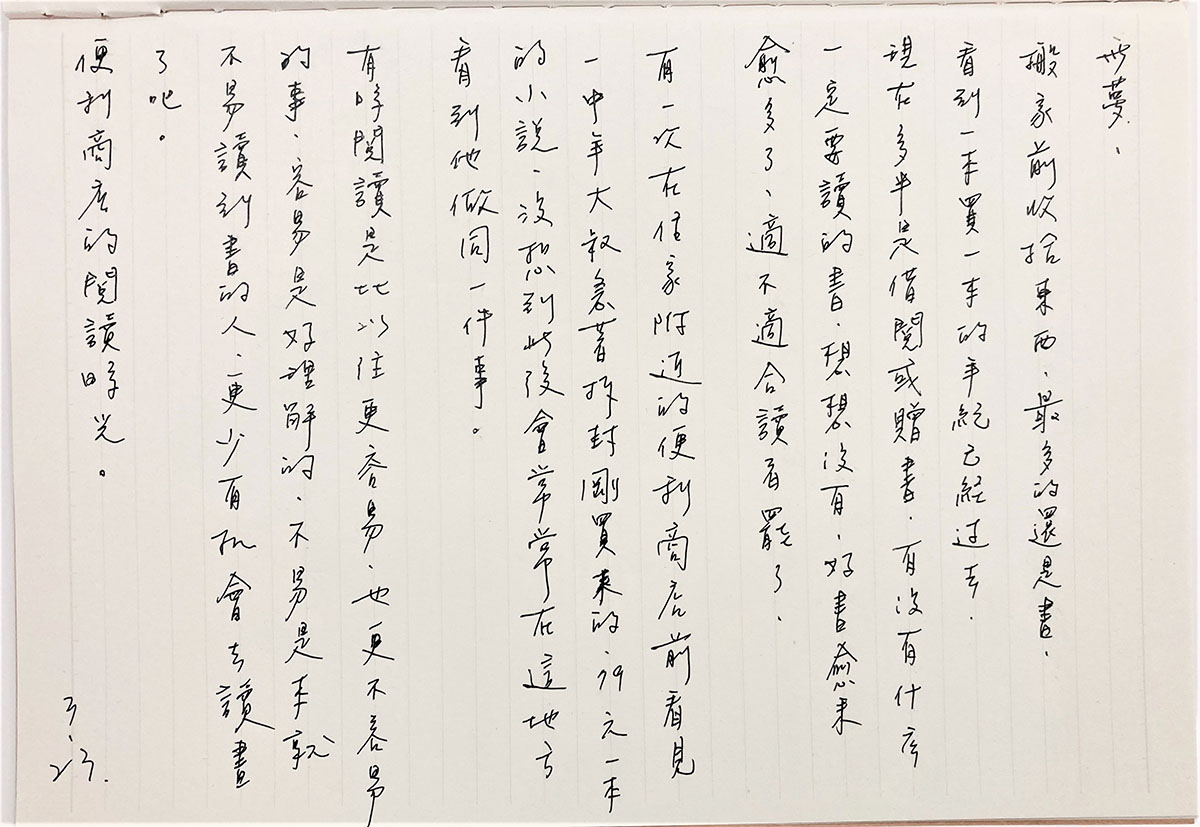 夢、
搬家前收拾東西、最多的還是書、
看到一本買一本的年紀已經过去、
現在多半是借閱或贈書、有沒有什広
一定要讀的書、想想沒有、好書愈来
愈多了、適不適合讀者罷了、
有一次在住家附近的便利商店前看見
一中年大叔急著拆封剛買來的、49元一本
的小說、沒想到此後會常常在這地方
看到他做同一件事。
有時閱讀是比以往更容易、也更不容易
的事、容易是好理解的、不易是本就
不易讀到書的人、更少有机會去讀書
了吧。
便利商店的閱讀時光。
3.23.